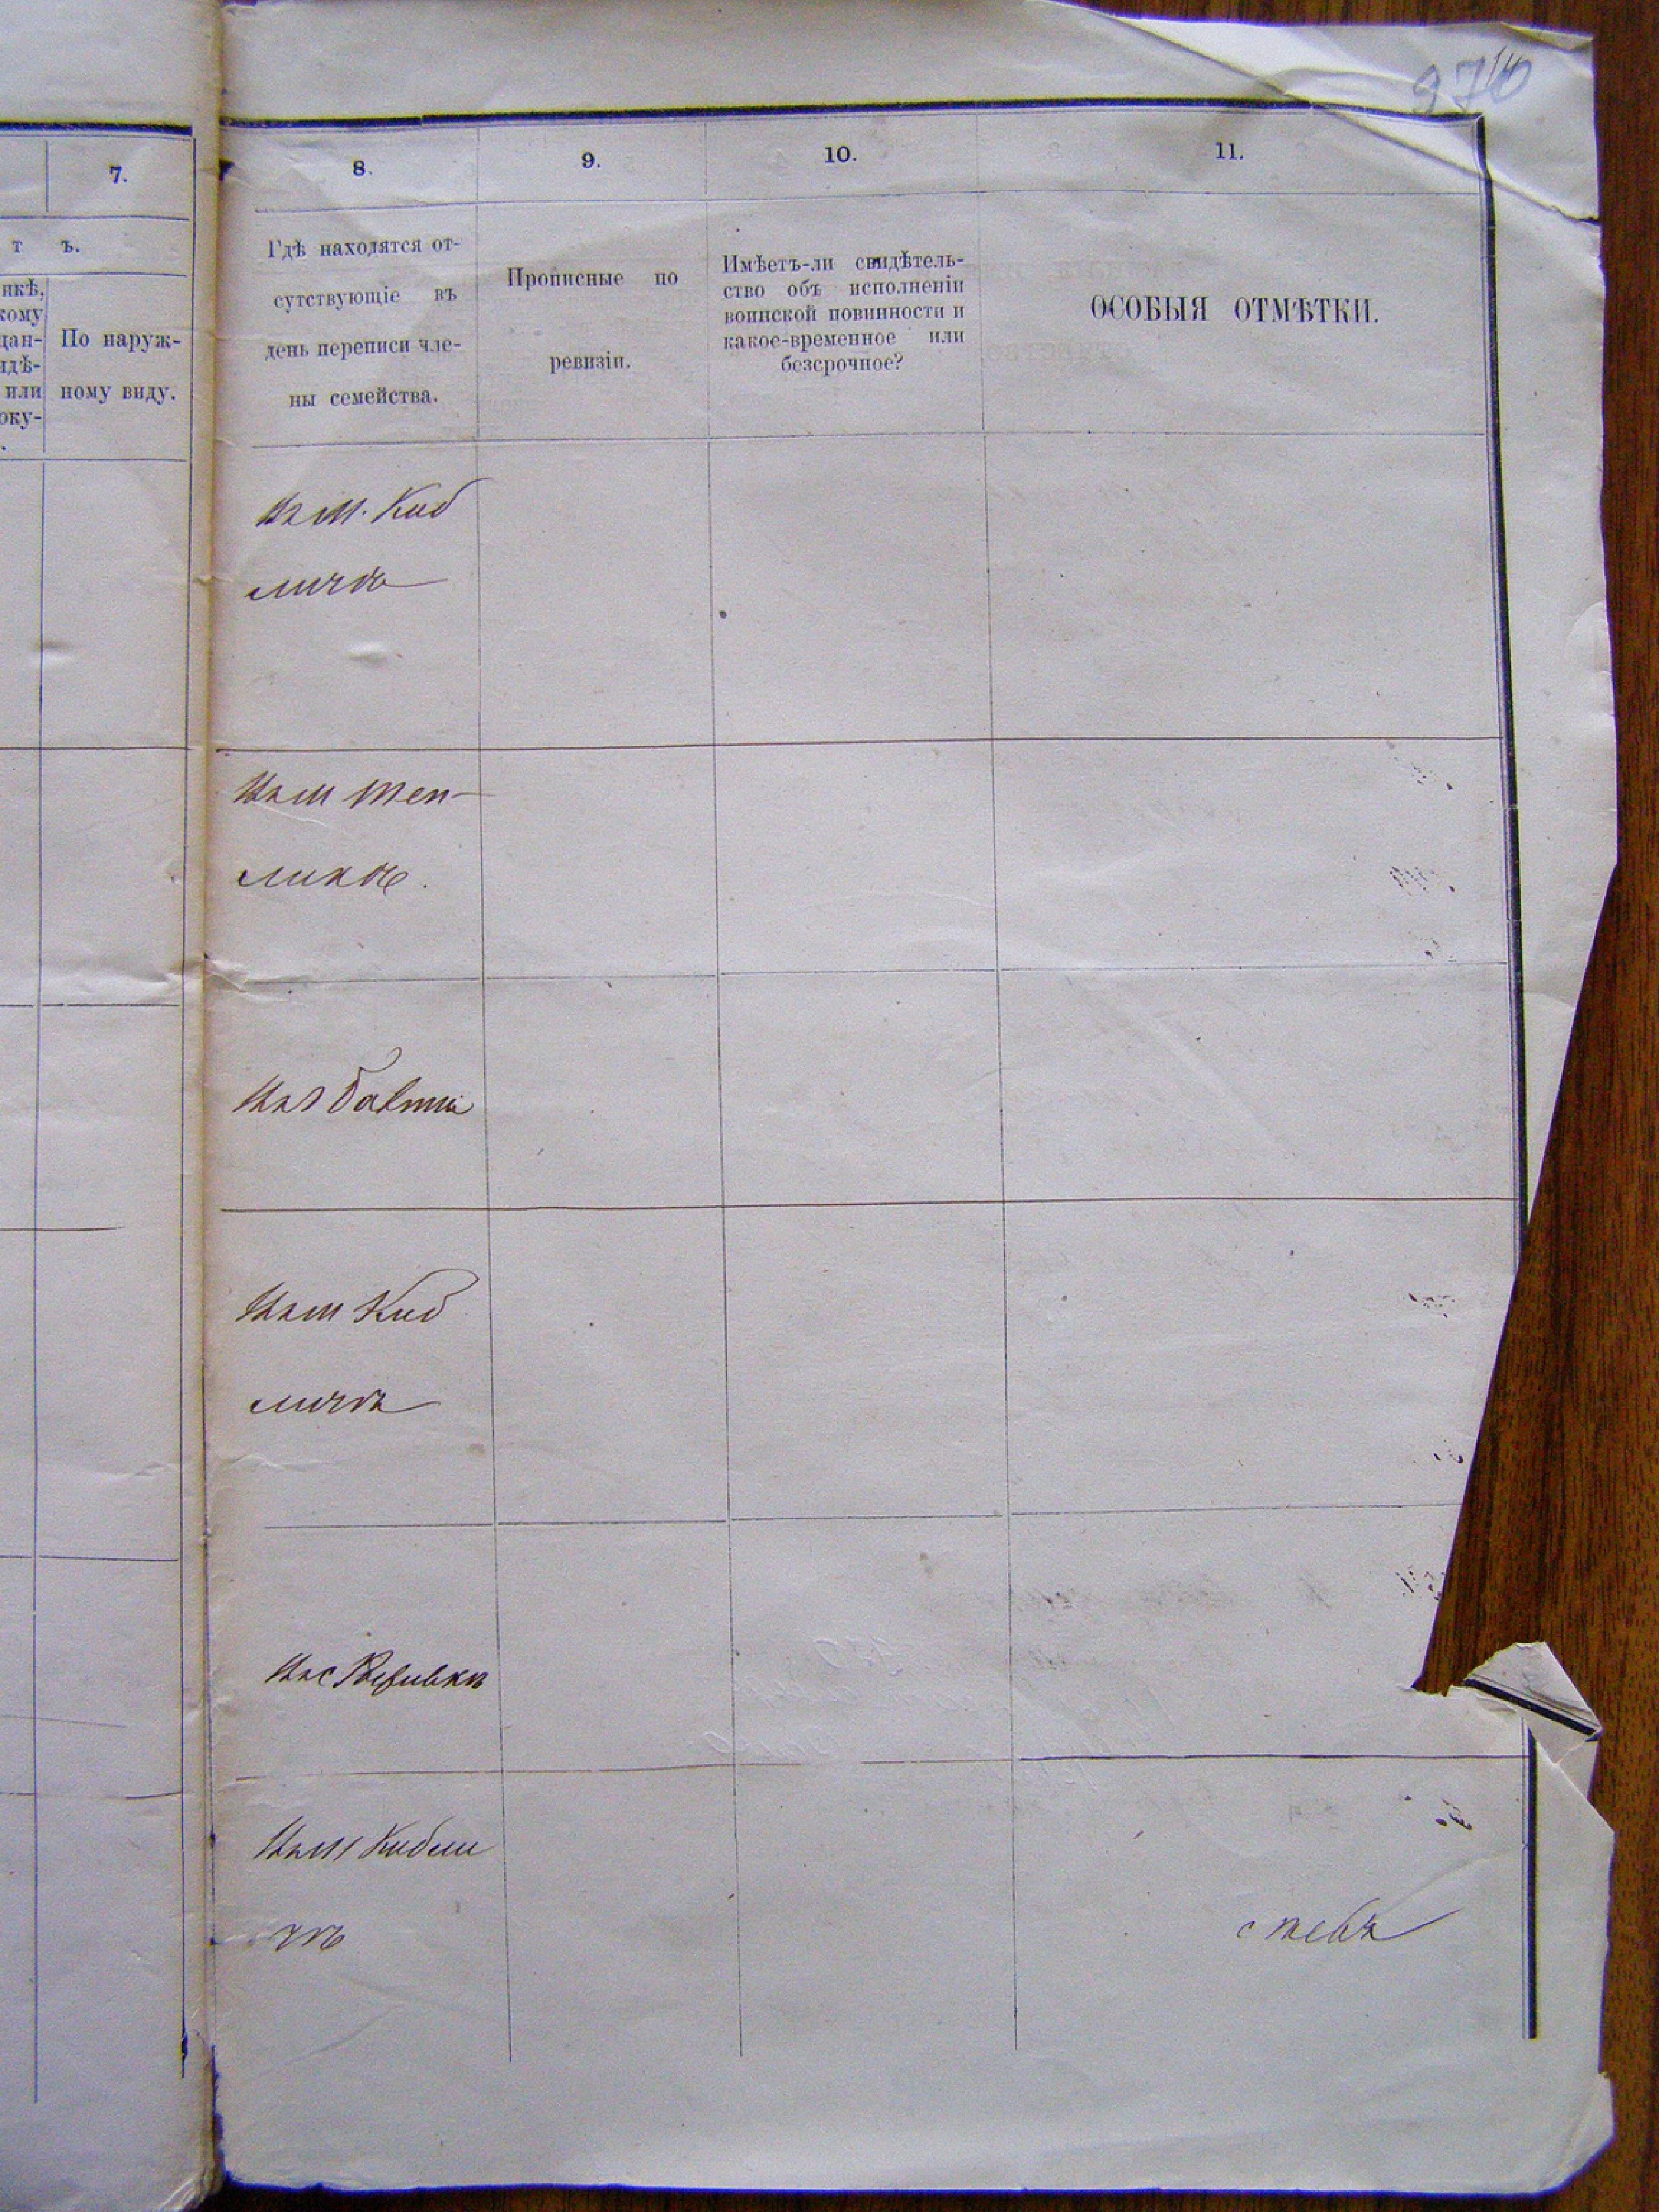 7.
8.
9.
10.
11.
т ъ.
икѣ,
кому
дан-
идѣ-
или
оку-
По наруж-
ному виду.
Гдѣ находятся от-
сутствующіе въ
день переписи чле-
ны семейства.
Прописные по
ревизіи.
Имѣетъ-ли свидѣтель-
ство объ исполненіи
воинской повинности и
какое-временное или
безсрочное?
ОСОБЫЯ ОТМѢТКИ.
Въ м. Киб
личѣ
Въ м Теп-
ликѣ.
Въ
Въ м Киб
личѣ
Въ с
Въ м Кибли
чѣ